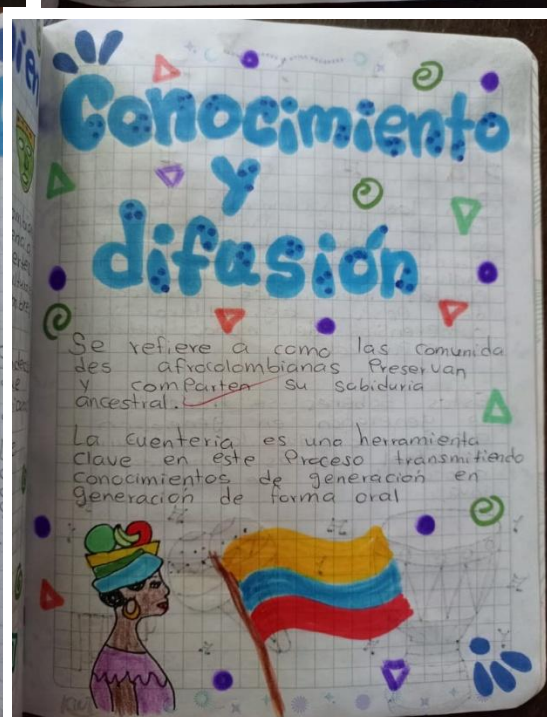 Conocimiento
y
difusión
Se refiere a como las comunida
des afrocolombianas Preservan
y comparten su sabiduria
ancestral.
La cuenteria es una herramienta
clave en este Proceso transmitiendo
conocimientos de generación en
generación de forma oral